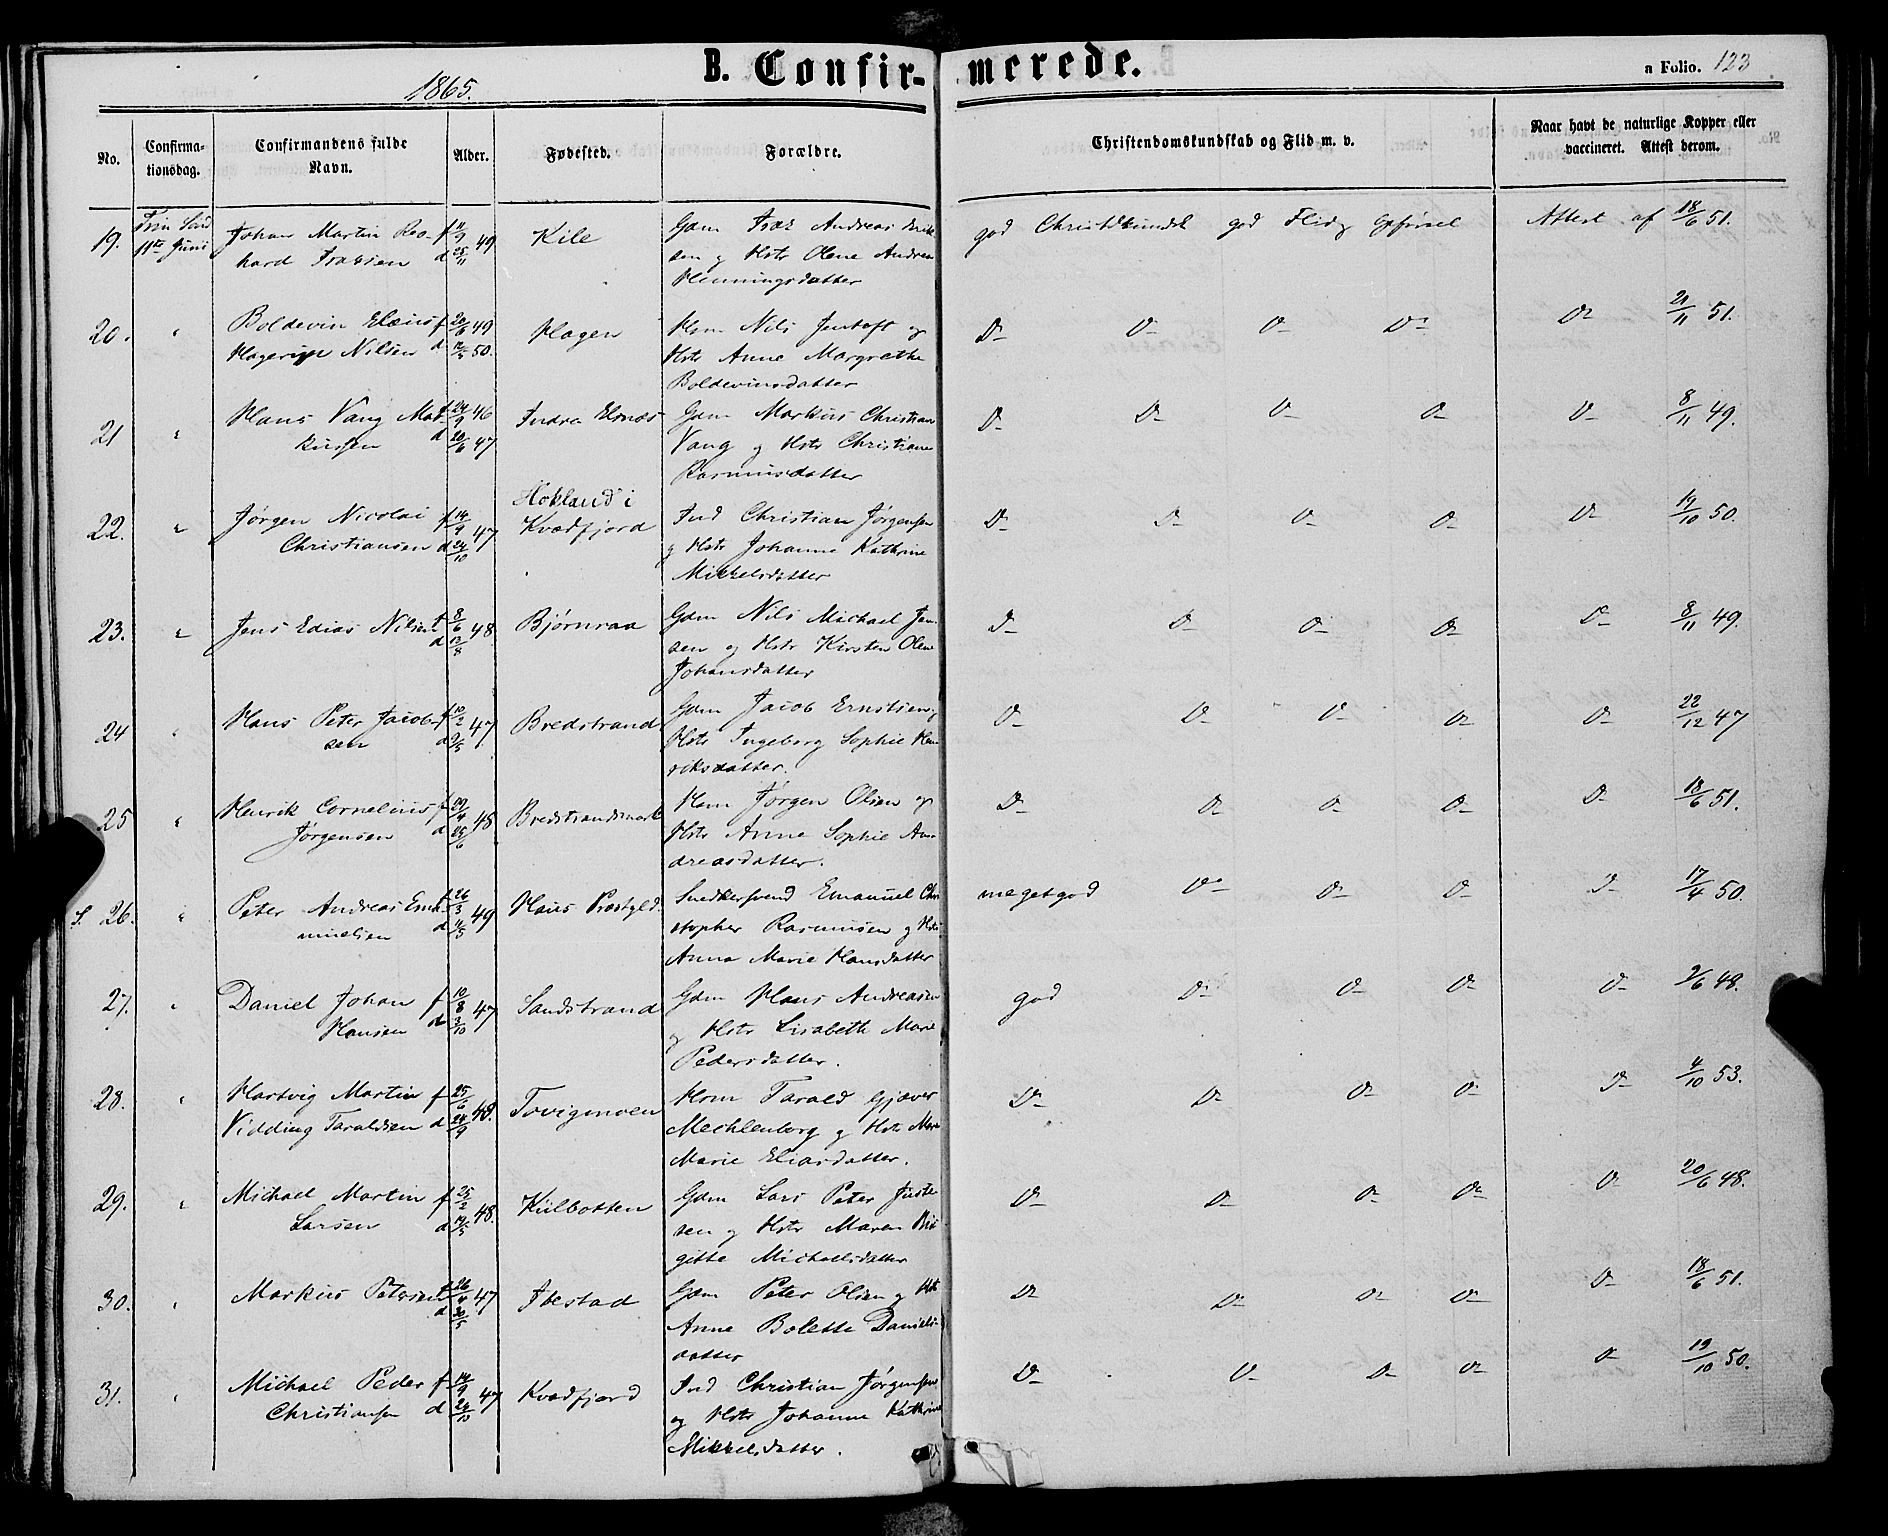 1865.
B. Confir- merede.
a Folio. 123
No.
Confirma-
tionsdag.
Confirmandens fulde
Navn.
Alder.
Fødested.
Forældre.
Christendomskundskab og Flid m. v.
Naar havt de naturlige Kopper eller
vaccineret. Attest derom.
19. Trin Sønd Johan Martin f 11/9 49 Kile Gdm Isak Andreas god Flid og Opførsel Attest af 18/6 51.
11te Juni d 25/11 sen og Hstr Olene Andrea
Henningsdatter
20. " Boldevin Elæus f 49 Hagen Hsm Nils Jentoft og D- D- D- D- D- 21/11 51.
Nilsen d 50. Hstr Anne Margrethe
Boldevinsdatter
21 " Hans Vang Mar- f 24/9 46 Indra Elsnæs Gdm Markus Christian D- D- D- D- D- 8/11 49.
kussen d 20/6 47 Vang og Hstr Christiane
Rasmusdatter
Hokland i
22. " Jørgen Nicolai f 14/9 47 Kvædfjord Ind Christian Jørgensen D- D- D- D- D- 19/10 50.
Christiansen d 24/10 og Hstr Johanne Kathrine
Mikkelsdatter
23. " Jens Edias Nilsen f 8/6 48 Bjørnraa Gdm Nils Michael Jen- D- D- D- D- D- 8/11 49.
d 13/8 sen og Hstr Kirsten Olene
Johansdatter
24 " Hans Peter Jacob- f 10/2 47 Bredstrand Gdm Jacob Ernstsen og D- D- D- D- D- 22/12 47
sen d 2/5 Hstr Ingeborg Sophie Hen-
riksdatter.
25 " Henrik Cornelius f 48 Bredstrandsmark Hsm Jørgen Olsen og D- D- D- D- D- 18/6 51.
Jørgensen d 25/6 Hstr Anne Sophie An-
dreasdatter.
S. 26. " Peter Andreas Ema- f 26/3 49 Snedkersvend Emanuel Chri megetgod D- D- D- D- 17/4 50.
nuelsen d stopher Rasmussen og Hstr
Anna Marie Hansdatter
27. " Daniel Johan f 10/8 47 Sandstrand Gdm Hans Andreasen god D- D- D- D- 2/6 48.
Hansen d 3/10 og Hstr Lisabeth Marie
Pedersdatter.
28. " Hartvig Martin f 25/6 48. Tovigmoen Hsm Tarald Gjæver D- D- D- D- D- 4/10 53.
Vidding Taraldsen d 24/9 Mechlenborg og Hstr
Marie Eliasdatter.
29. " Michael Martin f 25/2 48. Kulbotten Gdm Lars Peter Juste- D- D- D- D- D- 20/6 48.
Larsen d 14/5 sen og Hstr Maren Bir
gitte Michaelsdatter
30. " Markus Petersen f 26/4 47 Ibestad Gdm Peter Olsen og Hstr D- D- D- D- D- 18/6 51.
d 30/5 Anne Bolette Daniels-
datter
31. " Michael Peder f 14/9 47 Kvædfjord Ind Christian Jørgensen D- D- D- D- D- 19/10 50.
Christiansen d 24/10 og Hstr Johanne Kathrine
Mikkelsdatter.